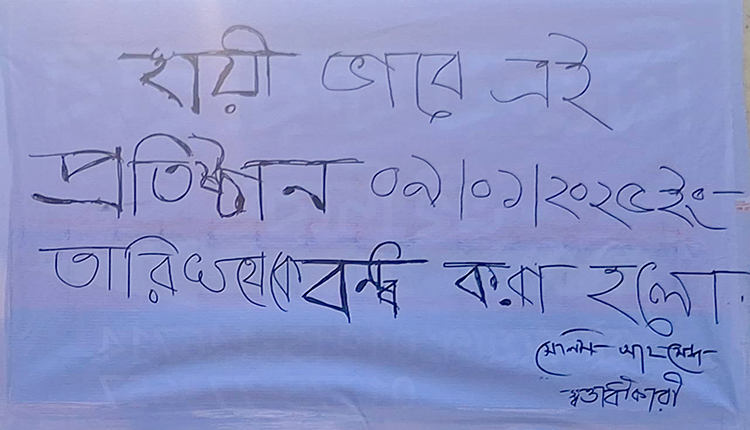 স্থায়ী ভাবে এই
প্রতিষ্ঠান ০৯/০১/২০২৫ইং
তারিখ থেকে বন্ধ করা হলো
সেলিম আহমেদ
স্বত্তাধীকারী